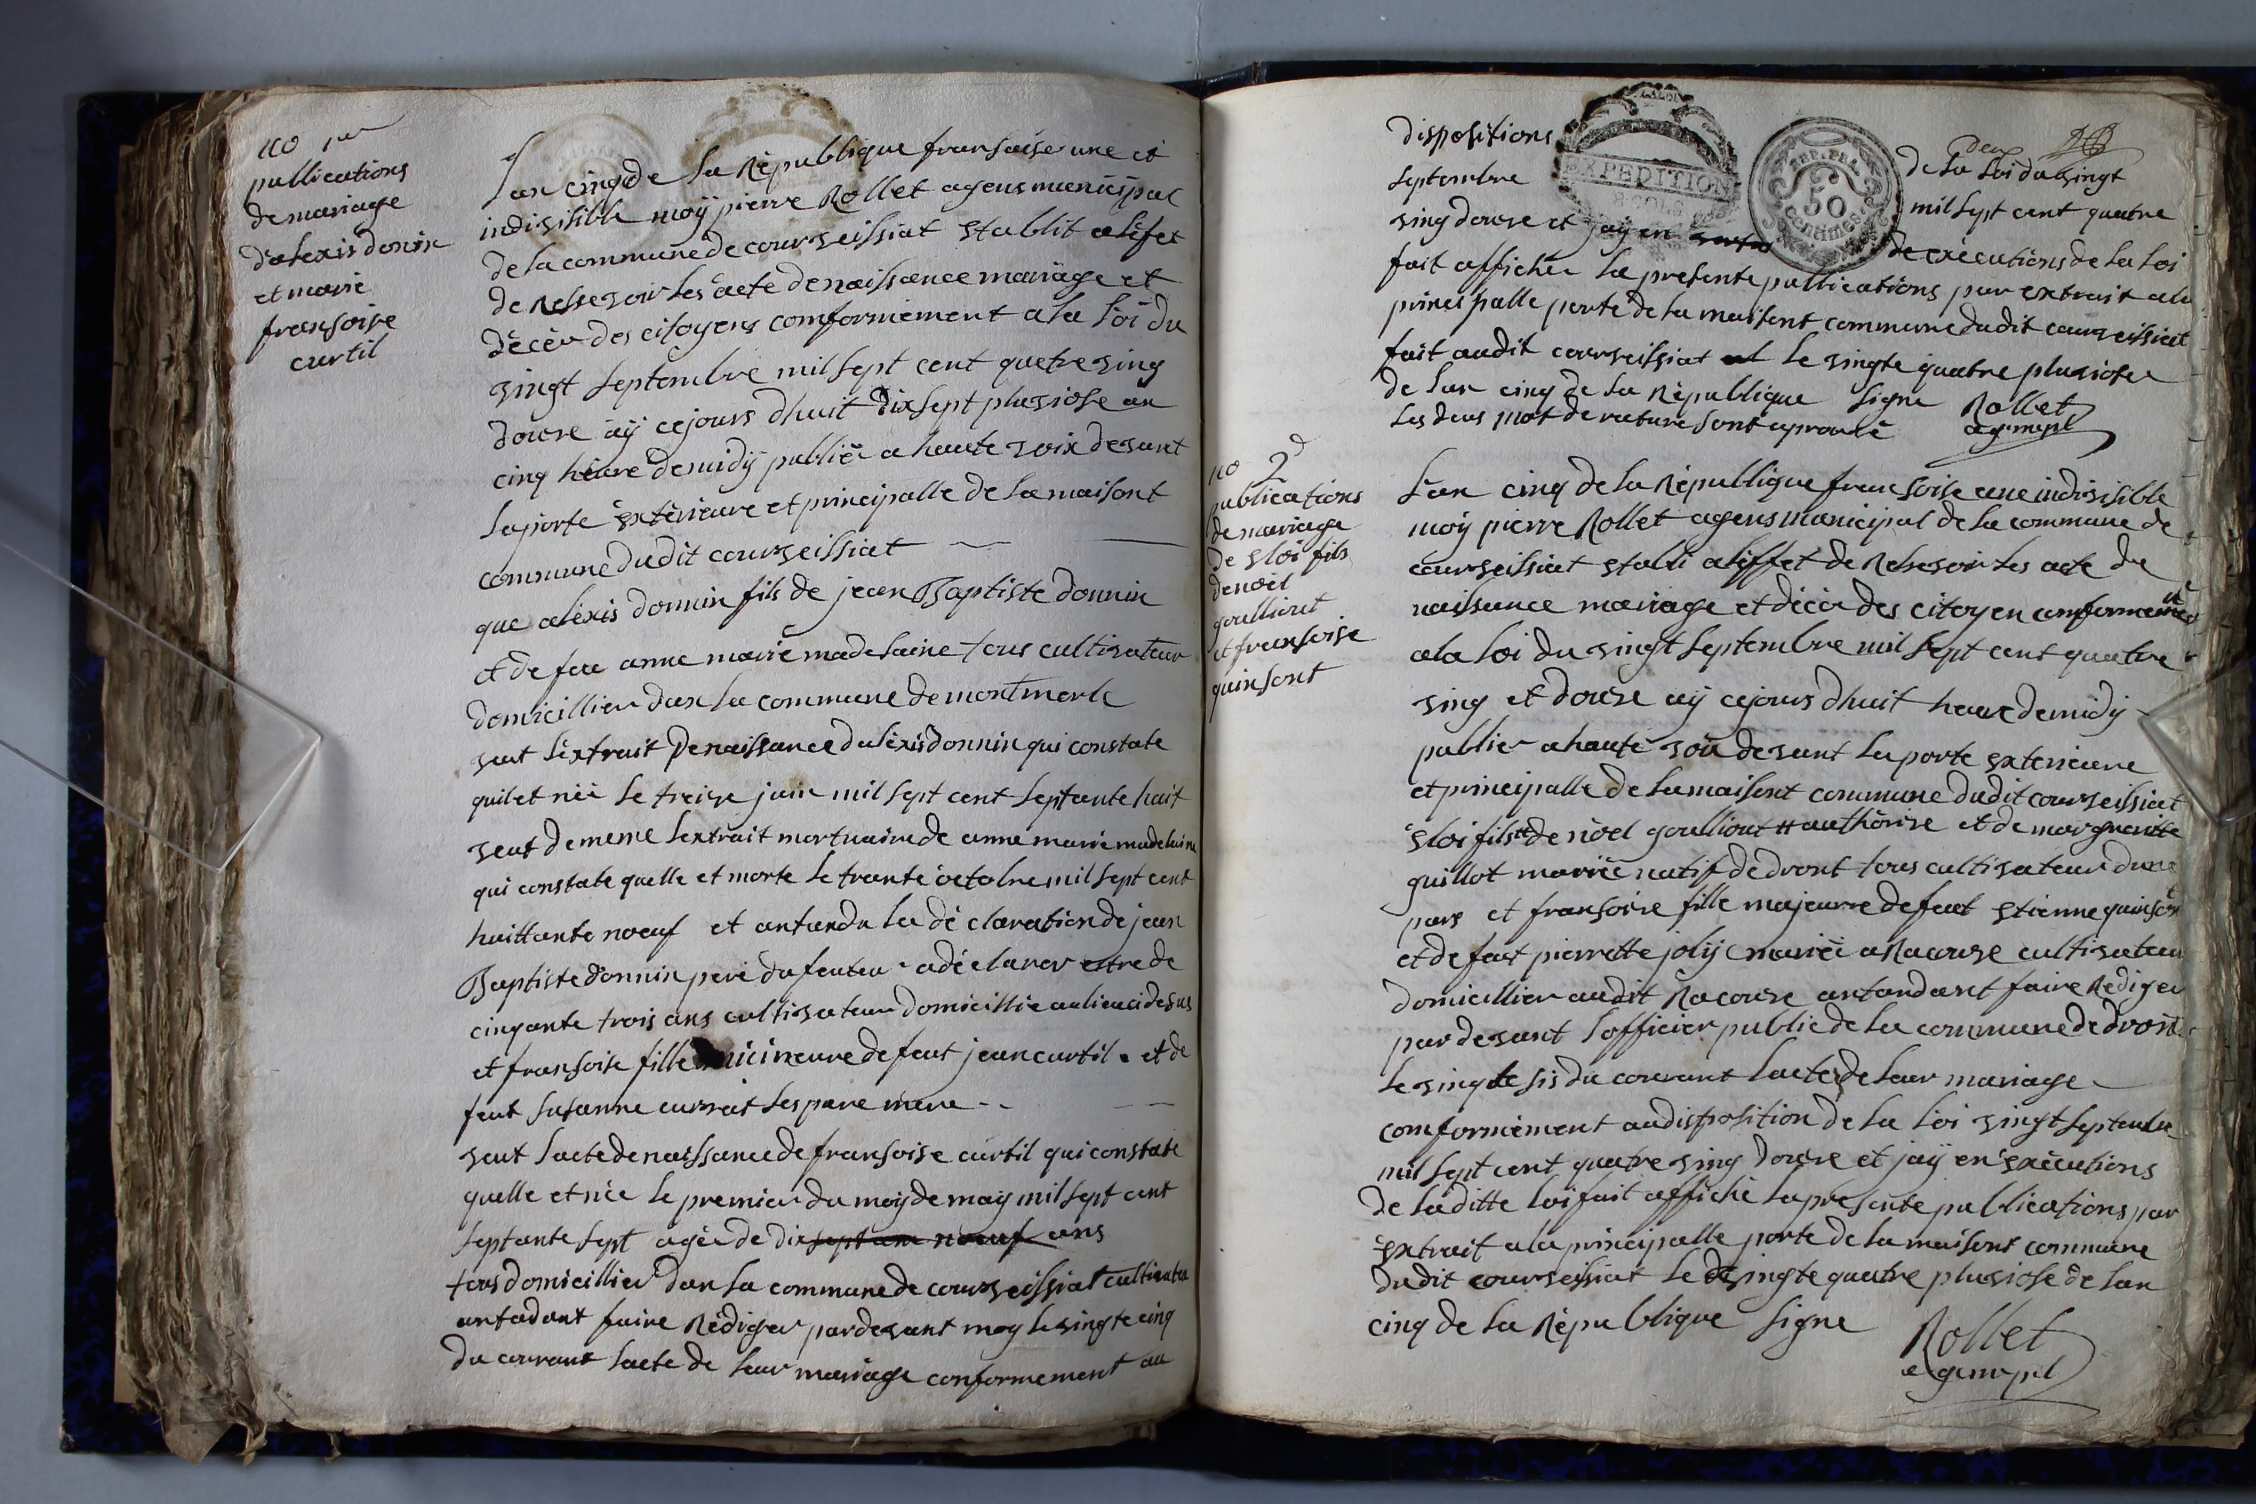 no 1er
publications
de mariage
d'alexis donin
et marie
fransoise
curtil
Lan cinq de la République fransaise une et
indivisible moÿ pierre Rollet agens municipal
de la commune de courveissiat stablit a lefet
de Ressevoir les acte de naissance mariage et
décèr des citoyens comformement a la loi du
vingt septembre mil sept cent quetre ving
douese aÿ ce jours dhuit dix sept pluviose an
cinq heure de midÿ publiée a haute voix devant
la porte extérieure et principalle de la maisont
commune dudit courveissiat
que alexis donnin fils de jean Baptiste donnin
et de feu anne marie madelaine tous cultivateur
domicillier dan la commune de montmerle
veut lextrait de naissance dalexis donnin qui constate
quil et née le treise juin mil sept cent septante huit
veut de meme lextrait mortuaire de anne marie madelaine
qui constate quelle et morte le trante octobre mil sept cent
huittante noeuf et antandu la déclaration de jean
Baptiste donnin pere du feuteu a déclarer estre de
cinqante trois ans cultivateur domicillié au lieu ci desus
et fransoise fille mineure de feut jean curtil et de
feut susanne currat ses pare mere
veut lacte de naissance de fransoise curtil qui constate
quelle et née le premier du moÿ de maÿ mil sept cent
septante sept agée de dix sept ans noeuf ans
tous domicillier dan la commune de courveissiat cultivateu
antadant faire Rédiger pardevant moy le vingte cinq
du courant lacte de leur mariage conformement au
deux
dispositions de la loi du vingt
septembre mil sept cent quatre
ving douese et jaÿ en de exécutions de la loi
fait affichér la presente publications par extrait a la
principalle porte de la maisont commune dudit courveissiat
fait audit courveissiat le vingte quatre pluviose
de lan cinq de la République signe Rollet
les deus mot de rature sont aprouvé agt mpl
EXPEDITION
REP. FRA.
50
Centimes
no 2d
publications
de mariage
de eloi fils
de noel
goulliout
et fransoise
quinsont
Lan cinq de la République fransoise une indivisible
moÿ pierre Rollet agens municipal de la commune de
courveissiat stabli a leffet de Ressevoir les acte de
naissance mariage et décèr des citoyen comformement
a la loi du vingt septembre mil sept cent quatre
ving et douese aÿ ce jours dhuit heure de midÿ
publier a haute voix devant la porte exterieure
et principalle de la maisont commune dudit courveissiat
eloi fils de noel goulliout et de marguerite
guillot mariée natif de dront tous cultivateur dune
pare et fransoise fille majeure de feut etienne quinson
et de feut pierrette jolÿ mariée a Racouse cultivateur
domicillier audit Racouse antandant faire Rédiger
par devant lofficier public de la commune de dront
le vingte sis du courant lacte de leur mariage
comformément au disposition de la loi vingt septembre
mil sept cent quatre ving douese et jaÿ en exécutions
de la ditte loi fait affiché la presente publications par
extrait a la principalle porte de la maisont commune
dudit courveissiat le vingte quatre pluviose de lan
cinq de la République signe Rollet
agt mpl